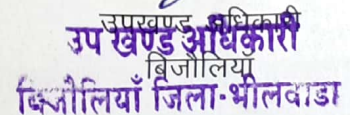 उपखण्ड अधिकारी
उप खण्ड अधिकारी
बिजौलिया
बिजौलियाँ जिला-भीलवाडा